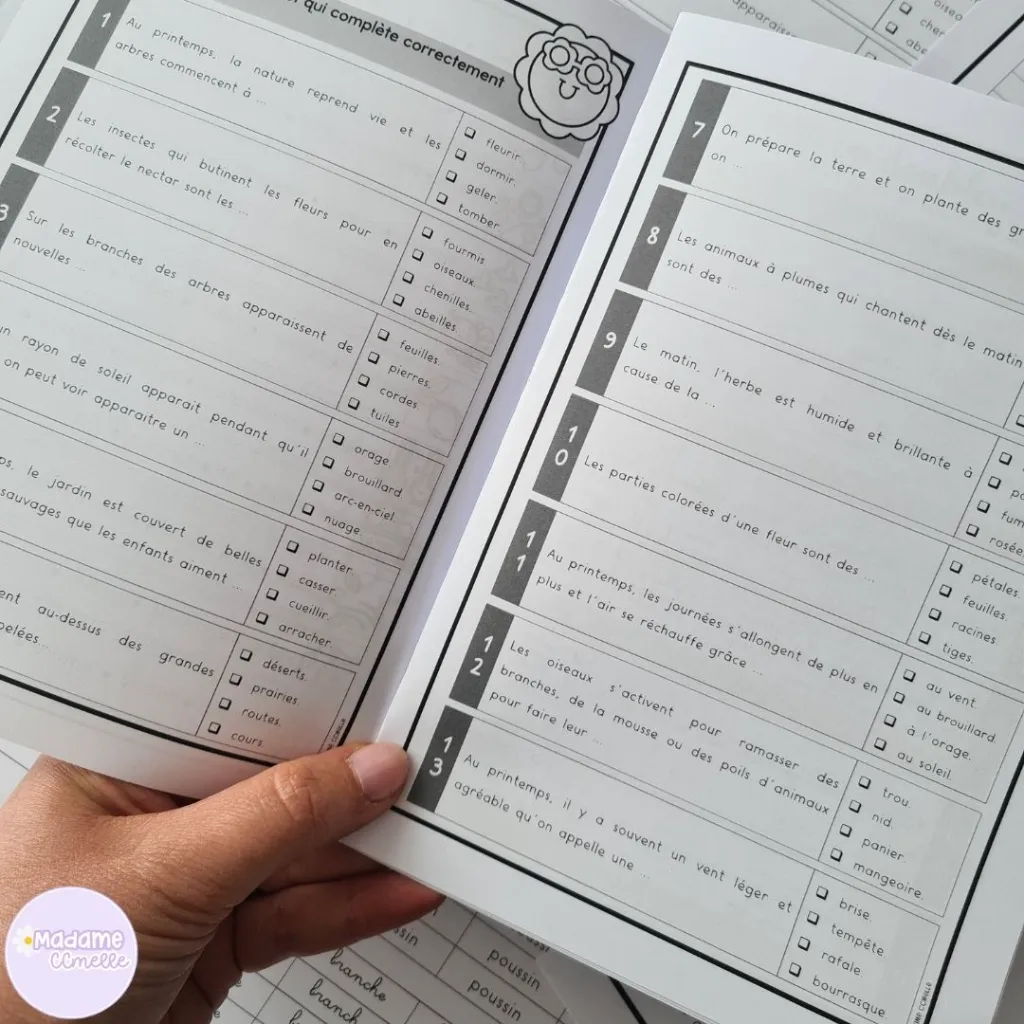 qui complète correctement
1
Au printemps, la nature reprend vie et les
arbres commencent à ...
fleurir.
dormir.
geler.
tomber.
2
Les insectes qui butinent les fleurs pour en
récolter le nectar sont les ...
fourmis
oiseaux.
chenilles.
abeilles.
3
Sur les branches des arbres apparaissent de
nouvelles ...
feuilles.
pierres.
cordes.
tuiles
un rayon de soleil apparait pendant qu'il
on peut voir apparaitre un ...
orage.
brouillard.
arc-en-ciel.
nuage.
le jardin est couvert de belles
sauvages que les enfants aiment ...
planter.
casser.
cueillir.
arracher.
au-dessus des grandes
déserts.
prairies.
routes.
cours.
7
On prépare la terre et on plante des
on ...
8
Les animaux à plumes qui chantent dès le matin
sont des ...
9
Le matin, l'herbe est humide et brillante à
cause de la ...
rosée
10
Les parties colorées d'une fleur sont des ...
pétales.
feuilles.
racines.
tiges.
11
Au printemps, les journées s'allongent de plus en
plus et l'air se réchauffe grâce ...
au vent.
au brouillard.
à l'orage.
au soleil.
12
Les oiseaux s'activent pour ramasser des
branches, de la mousse ou des poils d'animaux
pour faire leur ...
trou.
nid.
panier.
mangeoire.
13
Au printemps, il y a souvent un vent léger et
agréable qu'on appelle une ...
brise.
tempête
rafale.
bourrasque
branche
branche
poussin
poussin
Madame
CCmelle